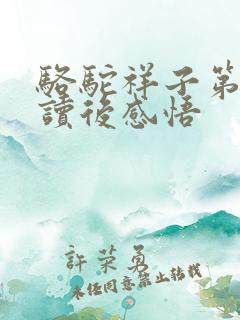 駱駝祥子第
讀後感悟
許荣勇
未经同意禁止转载